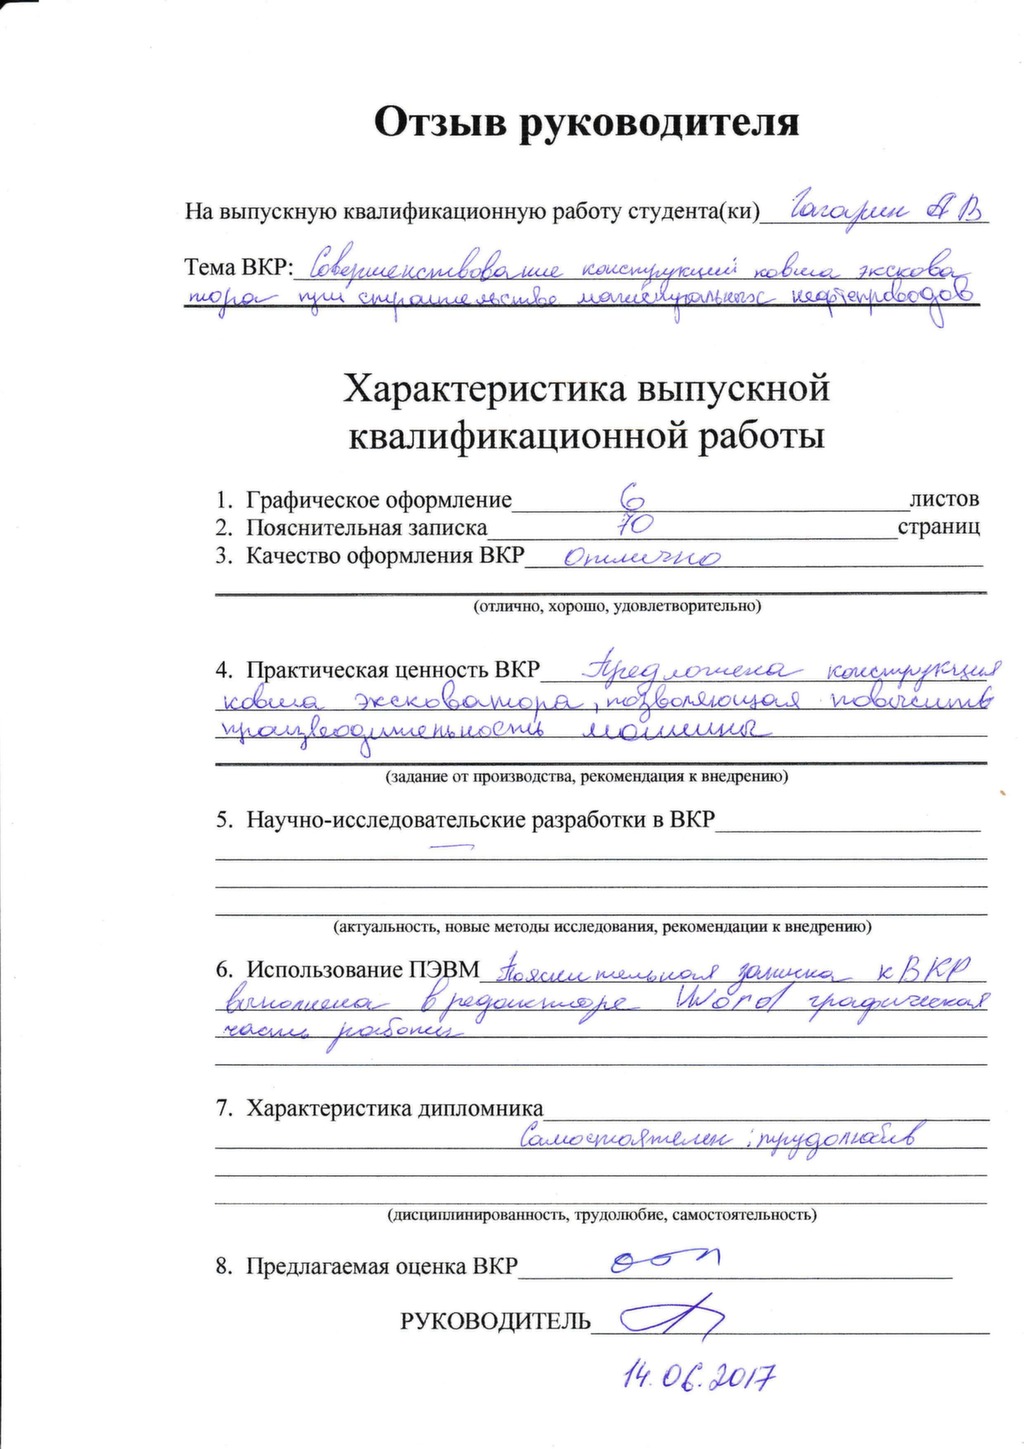 Отзыв руководителя
На выпускную квалификационную работу студента(ки) Гагарин А В
Тема ВКР: Совершенствование конструкций ковша экскова
тора при строительстве магистральных нефтепроводов
Характеристика выпускной
квалификационной работы
1. Графическое оформление 6 листов
2. Пояснительная записка 70 страниц
3. Качество оформления ВКР Отлично
(отлично, хорошо, удовлетворительно)
4. Практическая ценность ВКР Предложена конструкция
ковша эксковатора, позволяющая повысить
производительность машины
(задание от производства, рекомендация к внедрению)
5. Научно-исследовательские разработки в ВКР
—
(актуальность, новые методы исследования, рекомендации к внедрению)
6. Использование ПЭВМ Пояснительная записка к ВКР
выполнена в редакторе Word графическая
часть работы
7. Характеристика дипломника
Самостоятелен; трудолюбив
(дисциплинированность, трудолюбие, самостоятельность)
8. Предлагаемая оценка ВКР
РУКОВОДИТЕЛЬ
14.06.2017